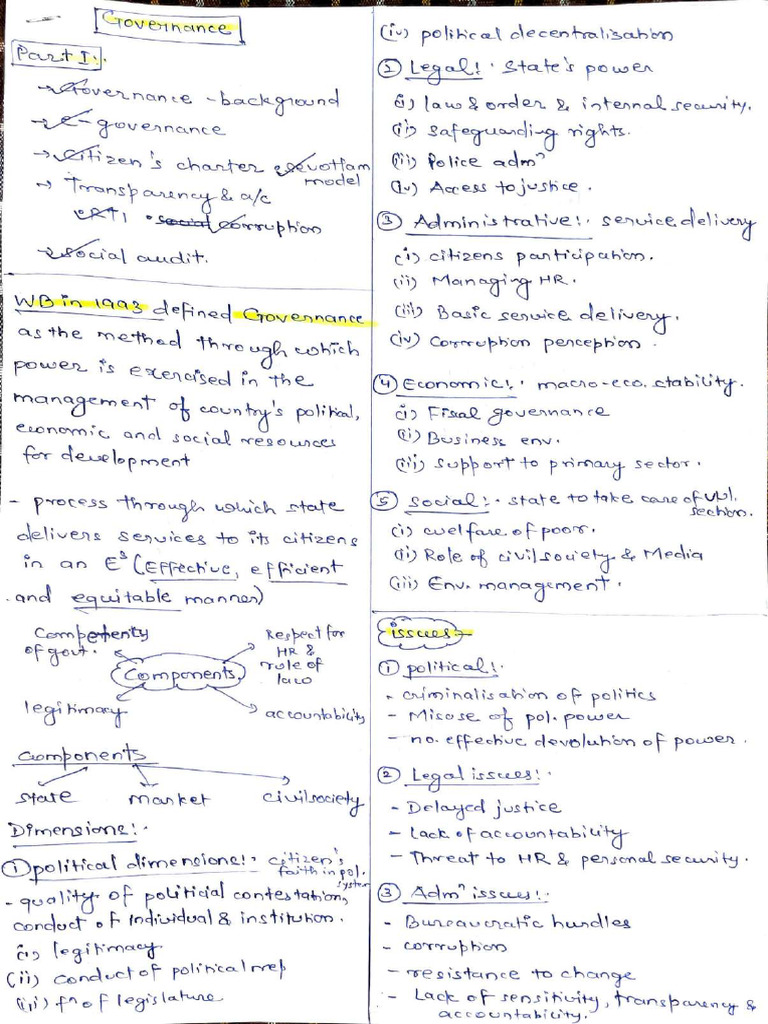 Governance
Part I:-
→ Governance - background
→ e-governance
→ Citizen's charter & sevottam
model
→ Transparency & a/c
RTI • social corruption
→ Social audit.
WB in 1993 defined Governance
as the method through which
power is exercised in the
management of country's political,
economic and social resources
for development
- process through which state
delivers services to its citizens
in an E³ (Effective, efficient
and equitable manner)
Competenty
of govt.
Respect for
HR &
rule of
law
Components
legitimacy
accountability
Components
state market civil society
Dimensions:-
① political dimensions:- citizen's
faith in pol.
system
- quality of political contestation,
conduct of individual & institution.
(i) legitimacy.
(ii) conduct of political rep
(iii) fⁿ of legislature
(iv) political decentralisation
② Legal:- State's power
(i) law & order & internal security.
(ii) safeguarding rights.
(iii) Police admⁿ
(iv) Access to justice.
③ Administrative:- service delivery
(i) citizens participation.
(ii) Managing HR.
(iii) Basic service delivery.
(iv) corruption perception.
④ Economic:- macro-eco. stability.
(i) Fiscal governance
(ii) Business env.
(iii) support to primary sector.
⑤ social:- state to take care of vul.
section.
(i) welfare of poor.
(ii) Role of civil society & Media
(iii) Env. management.
issues-
① political:-
- criminalisation of politics
- Misuse of pol. power
- no. effective devolution of power.
② Legal issues:-
- Delayed justice
- Lack of accountability
- Threat to HR & personal security.
③ Admⁿ issues:-
- Bureaucratic hurdles
- corruption
- resistance to change
- Lack of sensitivity, transparency &
accountability.